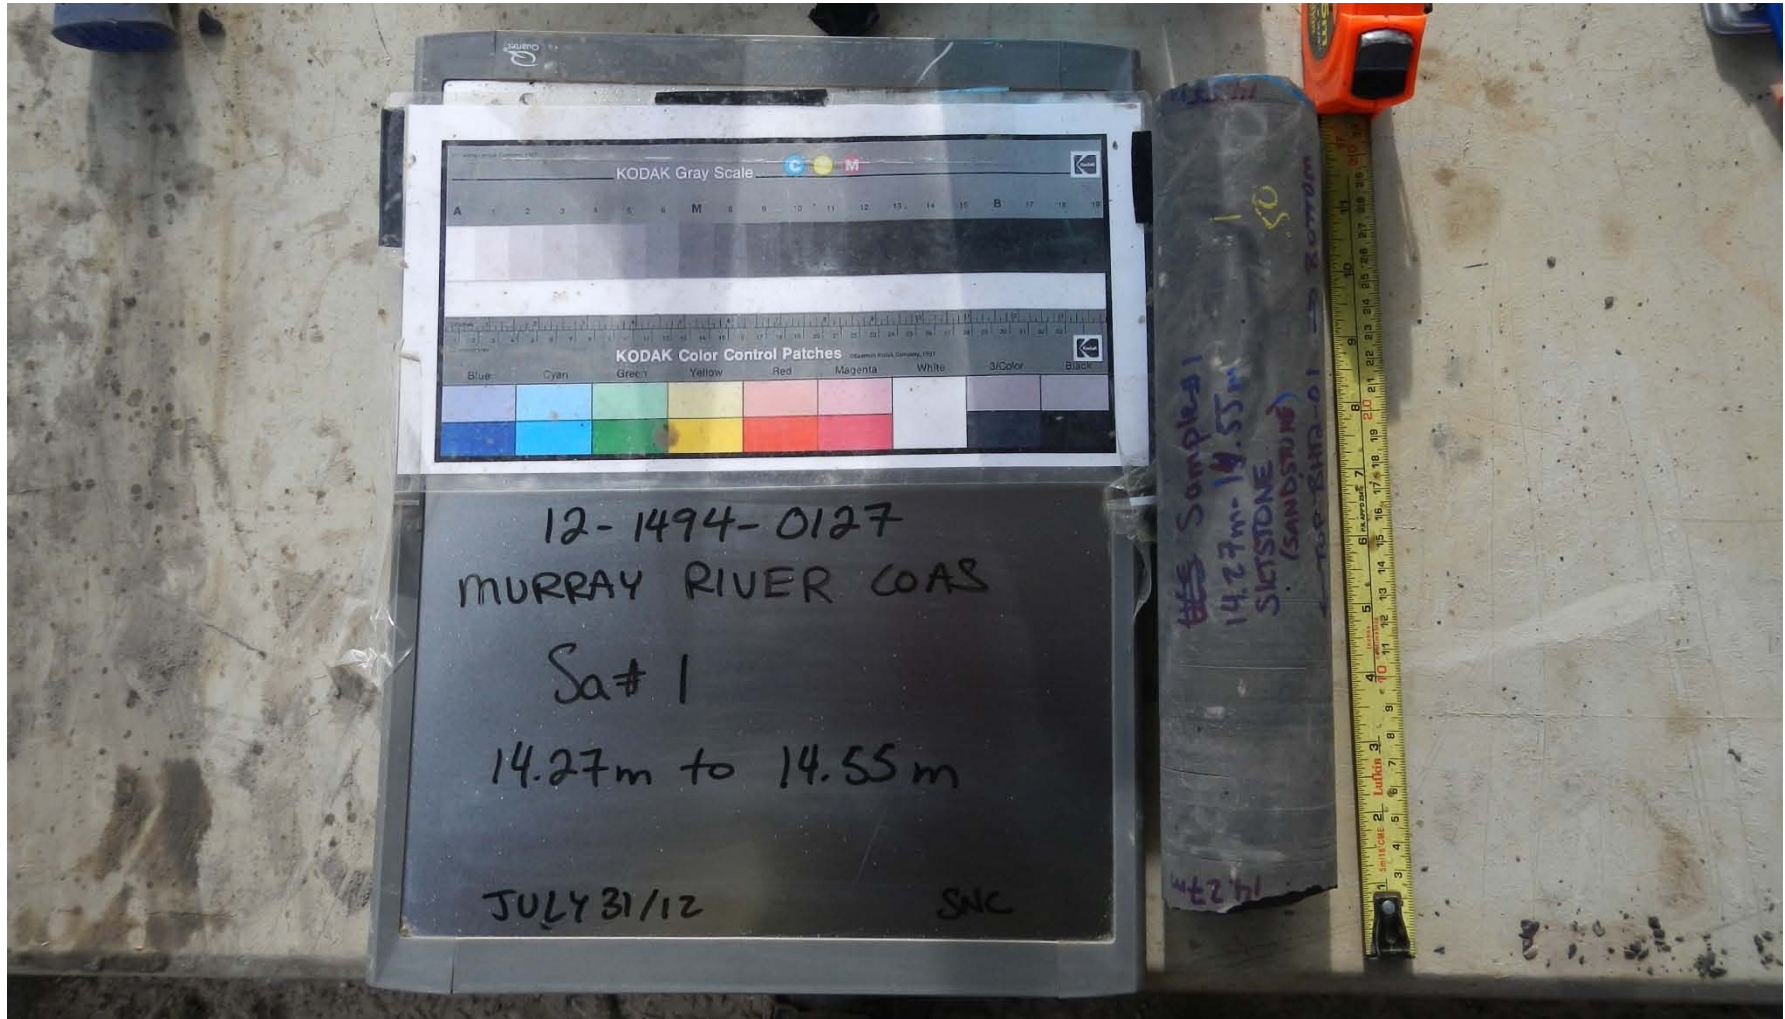 Quartet
KODAK Gray Scale
C Y M
Kodak
A 1 2 3 4 5 6 M 8 9 10 11 12 13 14 15 B 17 18 19
KODAK Color Control Patches
Kodak
Blue Cyan Green Yellow Red Magenta White 3/Color Black
12-1494-0127
MURRAY RIVER COAS
Sa# 1
14.27m to 14.55m
JULY 31/12 SNC
14.55
50
Sample #1
14.27m-14.55m
SILTSTONE
(SANDSTONE)
← TOP-BH12-01 → BOTTOM
14.27
Lufkin
5m/16' CME